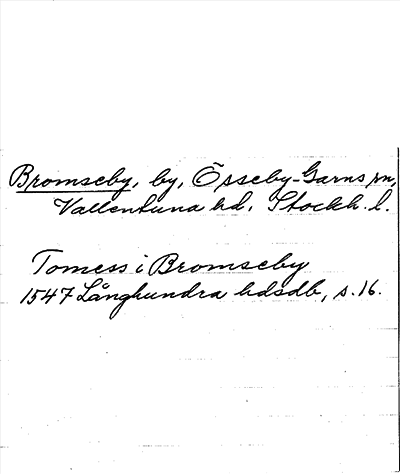 Bromseby, by, Össeby-Garns sn,
Vallentuna hd, Stockh. l.
Tomess i Bromseby
1547 Långhundra hdsdb, s. 16.